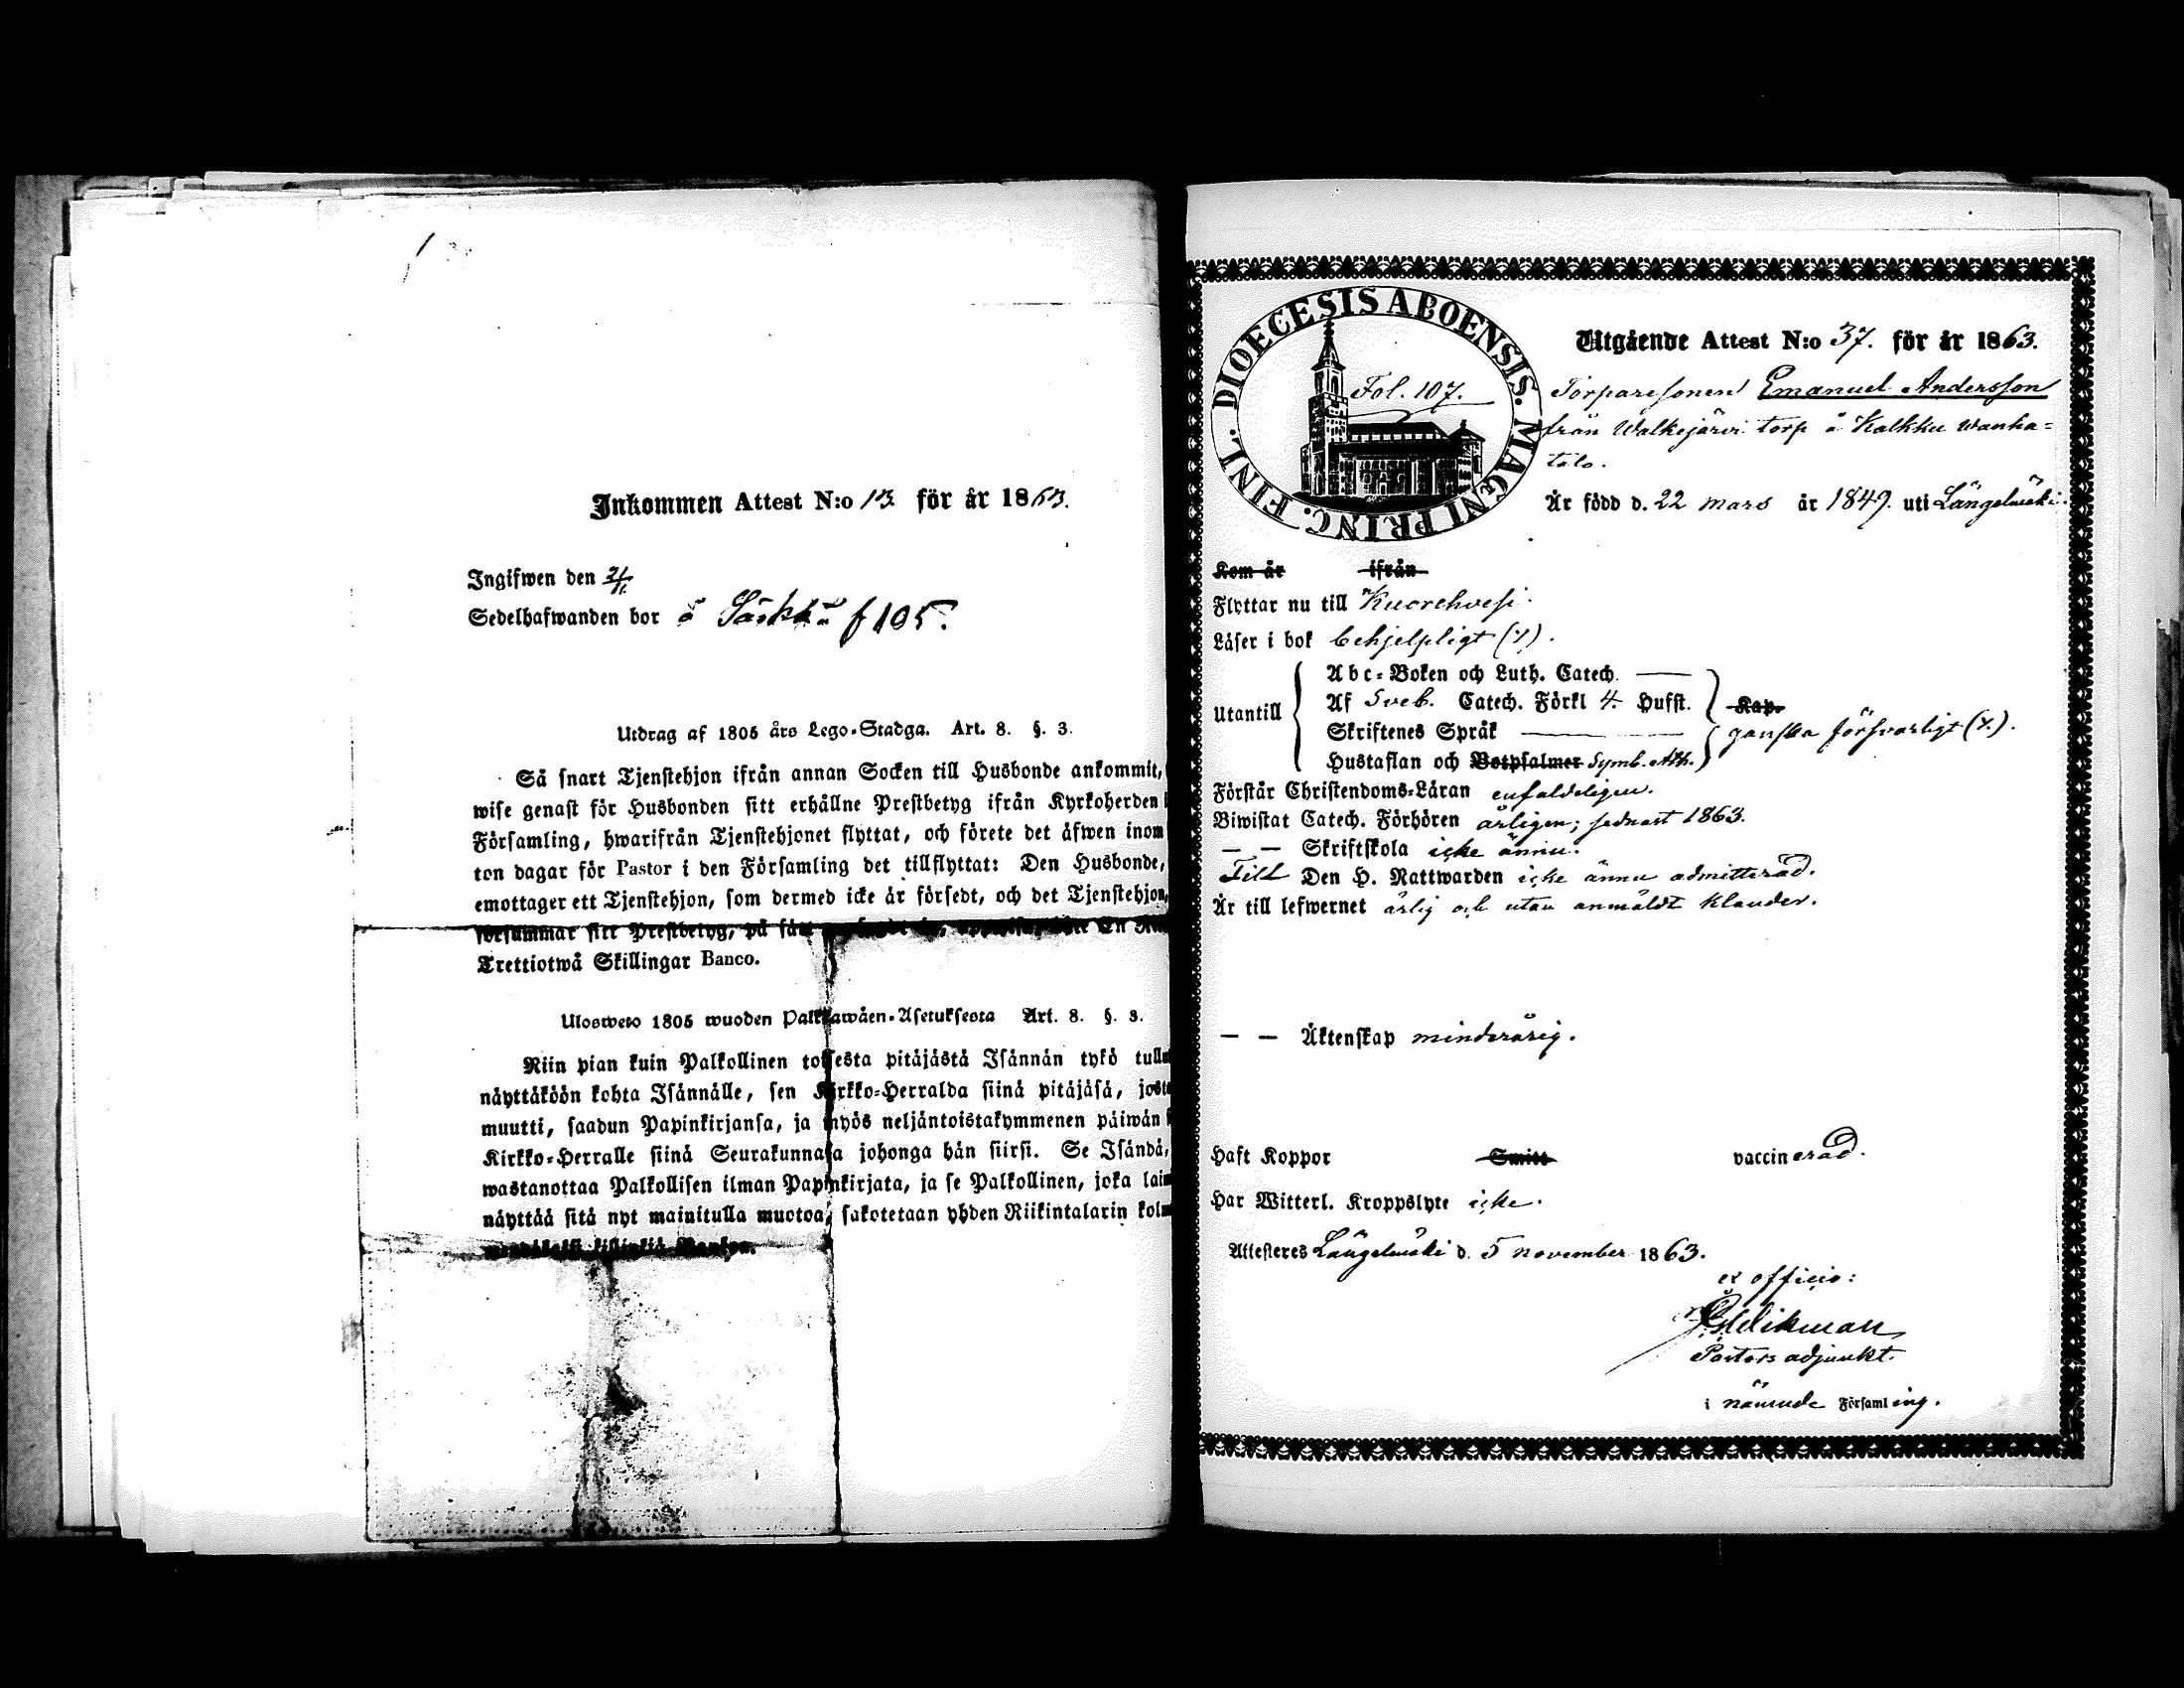 Inkommen Attest N:o 13. för år 1863.
Ingifwen den 21/11.
Sedelhafwanden bor å Säkkä f 105.
Utdrag af 1805 års Lego-Stadga. Art. 8. §. 3.
Så snart Tjenstehjon ifrån annan Socken till Husbonde ankommit,
wise genast för Husbonden sitt erhållne Prestbetyg ifrån Kyrkoherden
Församling, hwarifrån Tjenstehjonet flyttat, och förete det äfwen inom
ton dagar för Pastor i den Församling det tillflyttat: Den Husbonde,
emottager ett Tjenstehjon, som dermed icke är försedt, och det Tjenstehjon,
försummar sitt Prestbetyg, på sätt En
Trettiotwå Skillingar Banco.
Ulosweto 1805 wuoden Palkkawäen-Asetuksesta Art. 8. §. 3.
Niin pian kuin Palkollinen toisesta pitäjästä Isännän tykö tullu
näyttäköön kohta Isännälle, sen Kirkko-Herralda siinä pitäjäsä, josta
muutti, saadun Papinkirjansa, ja myös neljäntoistakymmenen päiwän
Kirkko-Herralle siinä Seurakunnasa johonga hän siirsi. Se Isändä,
wastanottaa Palkollisen ilman Papinkirjata, ja se Palkollinen, joka laim
näyttää sitä nyt mainitulla muotoa, sakotetaan yhden Riikintalarin kolm
DIOECESIS ABOENSIS. MAGNI PRINC. FINL.
Fol. 107.
Utgående Attest N:o 37. för år 1863.
Torparesonen Emanuel Andersson
från Walkejärvi torp å Kalkku wanha=
talo.
Är född d. 22 mars år 1849. uti Längelmäki.
Kom år ifrån
Flyttar nu till Kuorehvesi.
Läser i bok behjelpligt (/).
Utantill
Abc-Boken och Luth. Catech. —
Af Sveb. Catech. Förkl 4. Hufst.
Skriftenes Språk —
Hustaflan och Botpsalmer Symb. Ath.
Kap.
ganska försvarligt (x.).
Förstår Christendoms-Läran enfaldeligen.
Biwistat Catech. Förhören årligen; sednast 1863.
— — Skriftskola icke ännu.
Till Den H. Nattwarden icke ännu admitterad.
Är till lefwernet ärlig och utan anmäldt klander.
— — Äktenskap minderårig.
Haft Koppor Smitt vaccinerad.
Har Witterl. Kroppslyte icke.
Attesteres Längelmäki d. 5 november 1863.
ex officio:
Wikman
Pastors adjunkt.
i nämnde Församling.